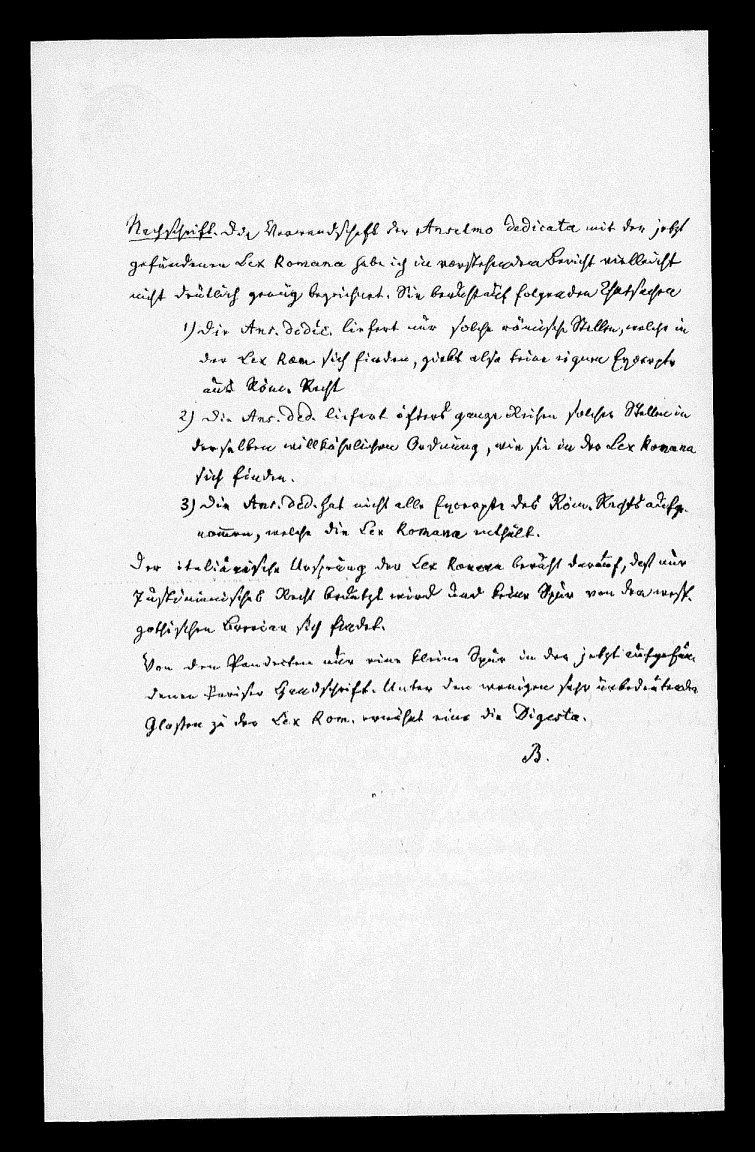 Nachschrift. Die Verwandschaft der Anselmo dedicata mit der jetzt
gefundenen Lex Romana habe ich in vorstehendem Bericht vielleicht
nicht deutlich genug bezeichnet. Sie beruht auf folgenden Thatsachen
1) Die Ans. dedic. liefert nur solche römische Stellen, welche in
der Lex Rom. sich finden, giebt also keine eignen Excerpte
aus Röm. Recht
2) Die Ans. ded. liefert öfters ganze Reihen solcher Stellen in
derselben willkührlichen Ordnung, wie sie in der Lex Romana
sich finden.
3) Die Ans. ded. hat nicht alle Excerpte des Röm. Rechts aufge-
nommen, welche die Lex Romana enthält.
Der italiänische Ursprung der Lex Romana beruht darauf, daß nur
Justinianisches Recht benutzt wird und keine Spur von dem west-
gothischen Breviar sich findet.
Von den Pandecten nur eine kleine Spur in der jetzt aufgefun-
denen Pariser Handschrift. Unter den wenigen sehr unbedeutenden
Glossen zu der Lex Rom. erwähnt eine die Digesta.
B.